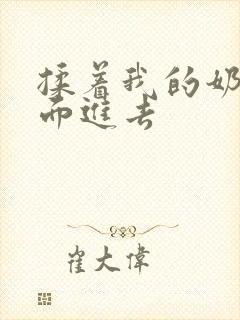 揉着我的奶
而进去
崔大伟